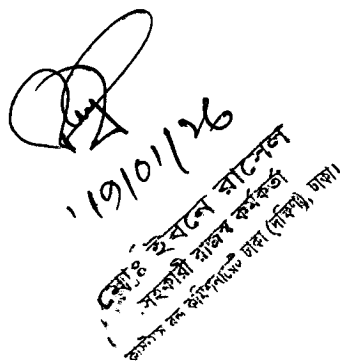 19/01/26
মোঃ ইবনে রাসেল
সহকারী রাজস্ব কর্মকর্তা
কাস্টমস বন্ড কমিশনারেট ঢাকা (দক্ষিণ), ঢাকা।